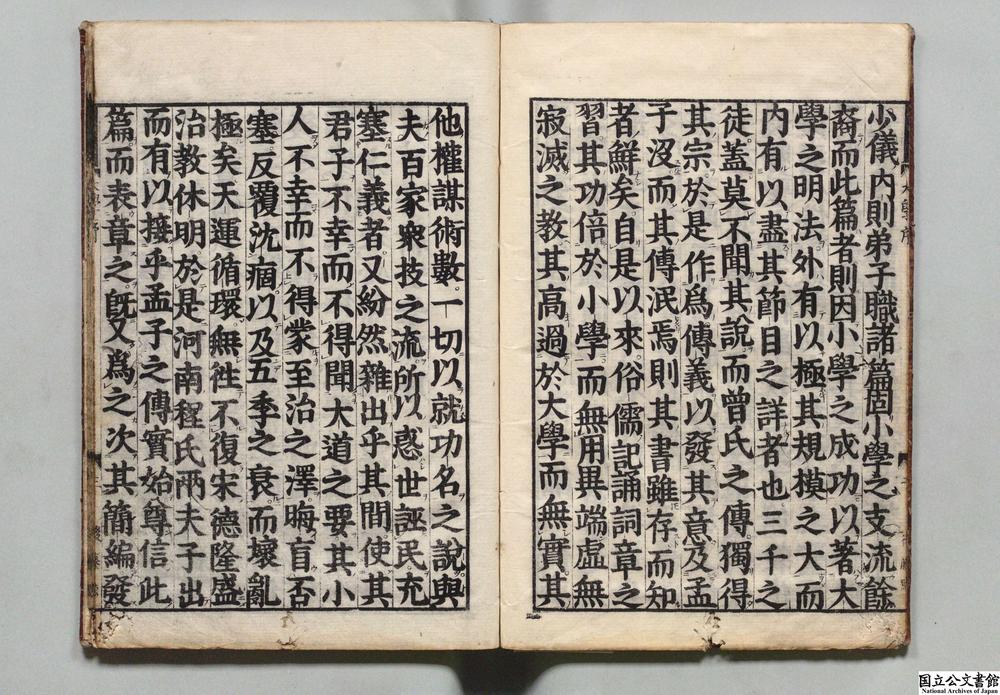 少儀内則弟子職諸篇固小學之支流餘
裔而此篇者則因小學之成功以著大
學之明法外有以極其規模之大而
内有以盡其節目之詳者也三千之
徒蓋莫不聞其說而曾氏之傳獨得
其宗於是作爲傳義以發其意及孟
子沒而其傳泯焉則其書雖存而知
者鮮矣自是以來俗儒記誦詞章之
習其功倍於小學而無用異端虛無
寂滅之教其高過於大學而無實其
他權謀術數一切以就功名之說與
夫百家衆技之流所以惑世誣民充
塞仁義者又紛然雜出乎其間使其
君子不幸而不得聞大道之要其小
人不幸而不得蒙至治之澤晦盲否
塞反覆沈痼以及五季之衰而壞亂
極矣天運循環無往不復宋德隆盛
治教休明於是河南程氏兩夫子出
而有以接乎孟子之傳實始尊信此
篇而表章之旣又爲之次其簡編發
国立公文書館
National Archives of Japan